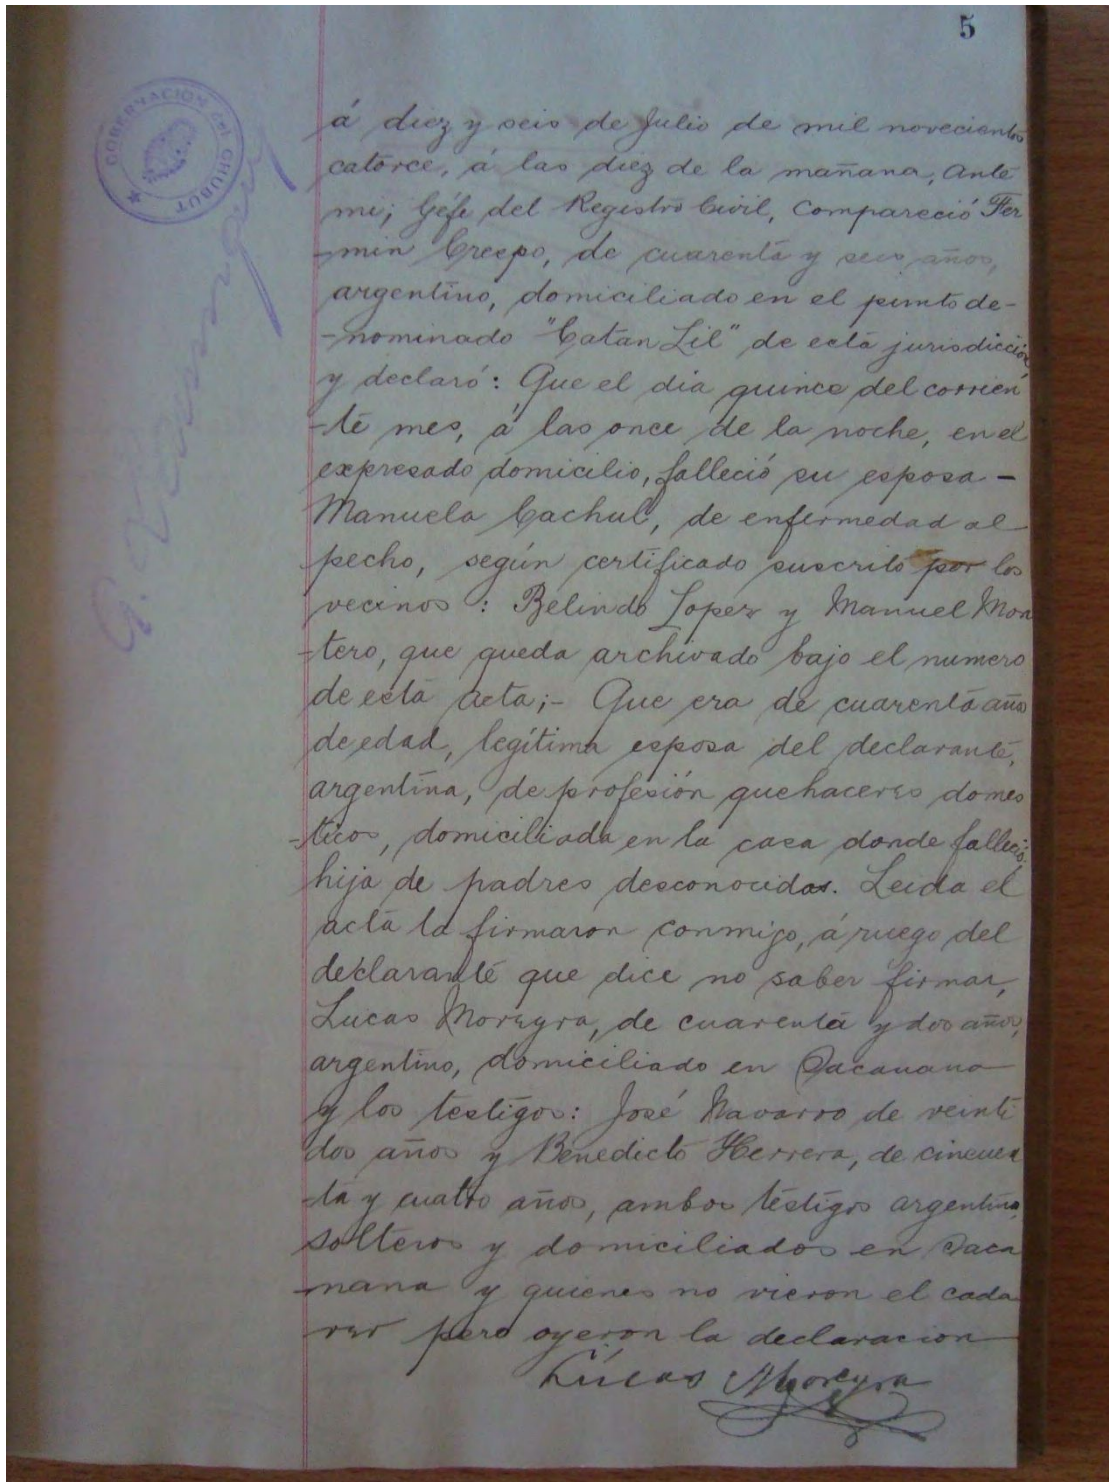 5
GOBERNACION del CHUBUT
á diez y seis de Julio de mil novecientos
catorce, á las diez de la mañana, Ante
mi; Géfe del Registro Civil, Compareció Fer
-min Crespo, de cuarenta y seis años,
argentino, domiciliado en el punto de-
-nominado "Catan Lil" de esta jurisdiccion
y declaró: Que el dia quince del corrien
-te mes, á las once de la noche, en el
expresado domicilio, falleció su esposa -
Manuela Cachul, de enfermedad al
pecho, según certificado suscrito por los
vecinos: Belindo Lopez y Manuel Mon
-tero, que queda archivado bajo el numero
de esta acta;- Que era de cuarenta años
de edad, legítima esposa del declarante,
argentina, de profesión quehaceres domes
-ticos, domiciliada en la casa donde falleció,
hija de padres desconocidos. Leida el
acta la firmaron conmigo, á ruego del
declarante que dice no saber firmar,
Lucas Moreyra, de cuarenta y dos años,
argentino, domiciliado en Sacanana
y los testigos: José Navarro de veinti
dos años y Benedicto Herrera, de cincuen
-ta y cuatro años, ambos testigos argentinos,
solteros y domiciliados en Saca
-nana y quienes no vieron el cada
-ver pero oyeron la declaracion
Lúcas Moreyra